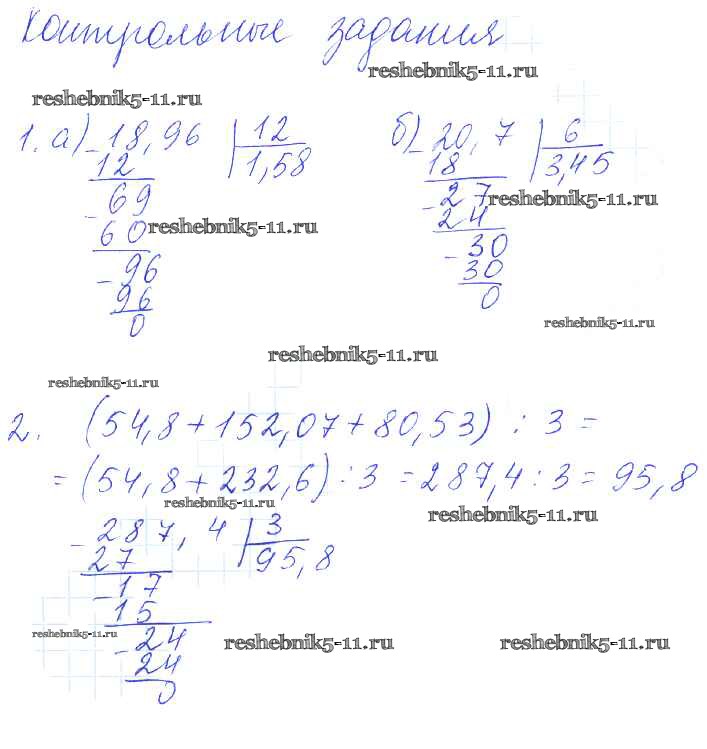 Контрольные задания
reshebnik5-11.ru
reshebnik5-11.ru
1. а) 18,96 | 12
12 | 1,58
- 69
60
- 96
96
0
reshebnik5-11.ru
б) - 20,7 | 6
18 | 3,45
- 27
24
- 30
30
0
reshebnik5-11.ru
reshebnik5-11.ru
reshebnik5-11.ru
reshebnik5-11.ru
2. (54,8+152,07+80,53) : 3 =
= (54,8+232,6) : 3 = 287,4 : 3 = 95,8
reshebnik5-11.ru
reshebnik5-11.ru
- 287,4 | 3
27 | 95,8
- 17
15
- 24
24
0
reshebnik5-11.ru
reshebnik5-11.ru
reshebnik5-11.ru